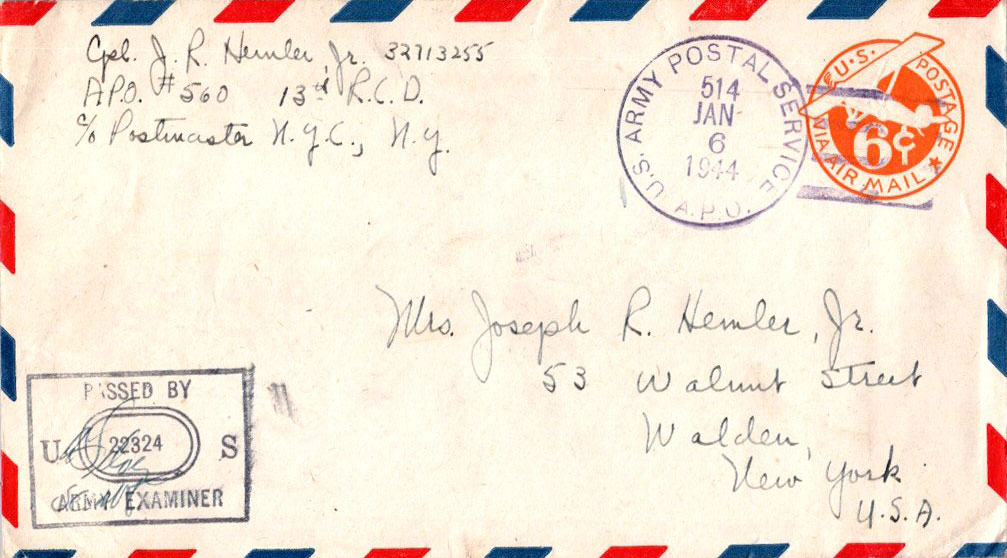 Cpl. J. R. Hemler Jr. 32713255
A.P.O. #560 13th R.C.D.
c/o Postmaster N.Y.C., N.Y.
U.S. ARMY POSTAL SERVICE
514
JAN
6
1944
A.P.O.
U.S. POSTAGE
6¢
VIA AIR MAIL
Mrs. Joseph R. Hemler, Jr.
53 Walnut Street
Walden,
New York
U.S.A.
PASSED BY
U 22324 S
ARMY EXAMINER